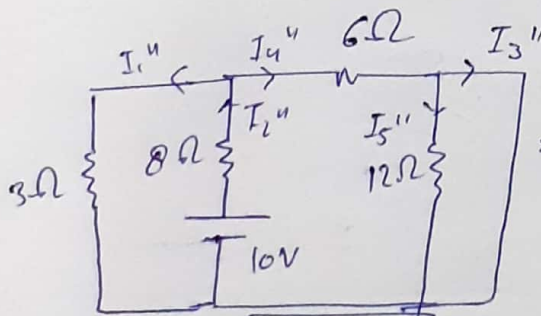 I₁" I₄" 6Ω I₃"
I₂" I₅"
3Ω 8Ω 12Ω
10V